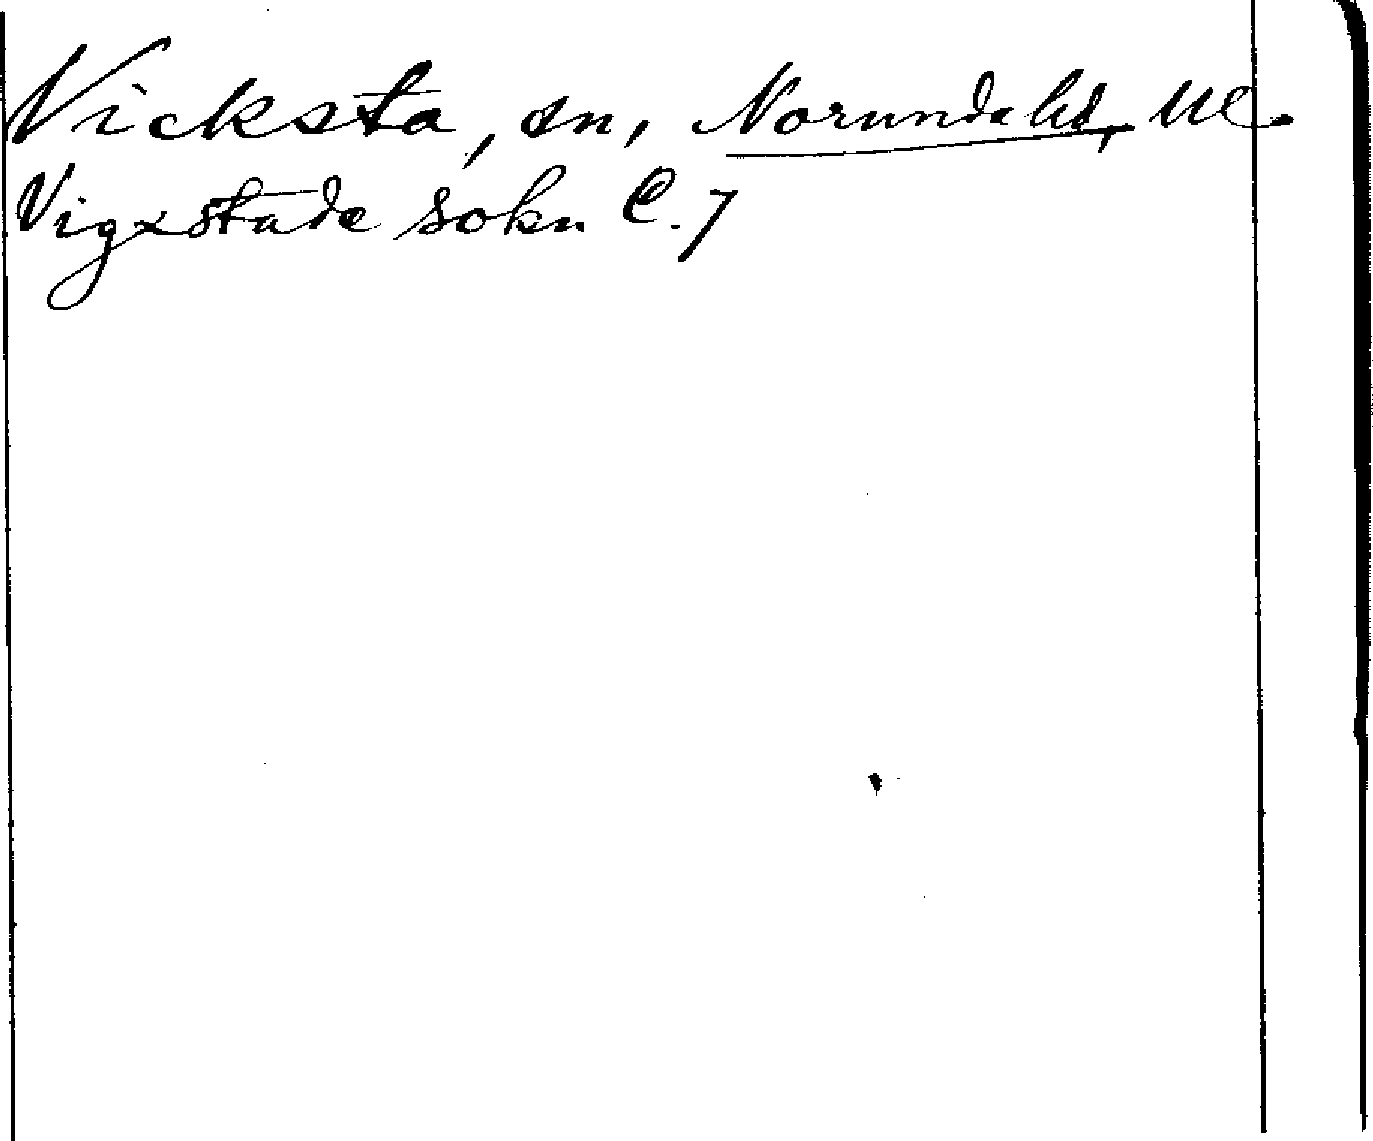 Vicksta, sn, Norunda hd, Ul.
Vigxstade sokn C. 7